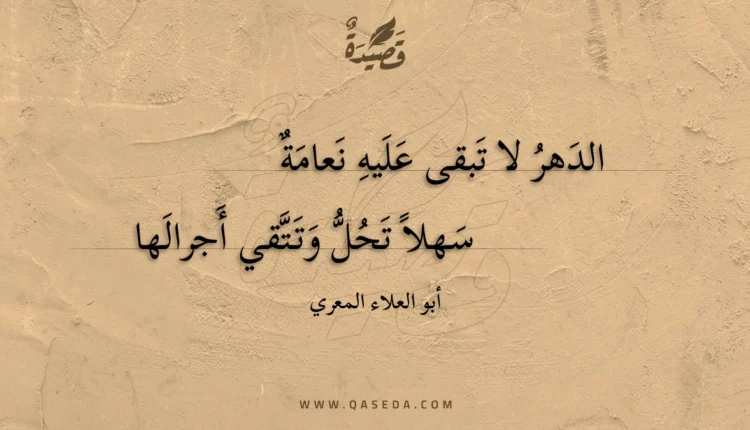 قَصِيدَةٌ
الدَهرُ لا تَبقى عَلَيهِ نَعامَةٌ
سَهلاً تَحُلُّ وَتَتَّقي أَجرالَها
أبو العلاء المعري
WWW.QASEDA.COM